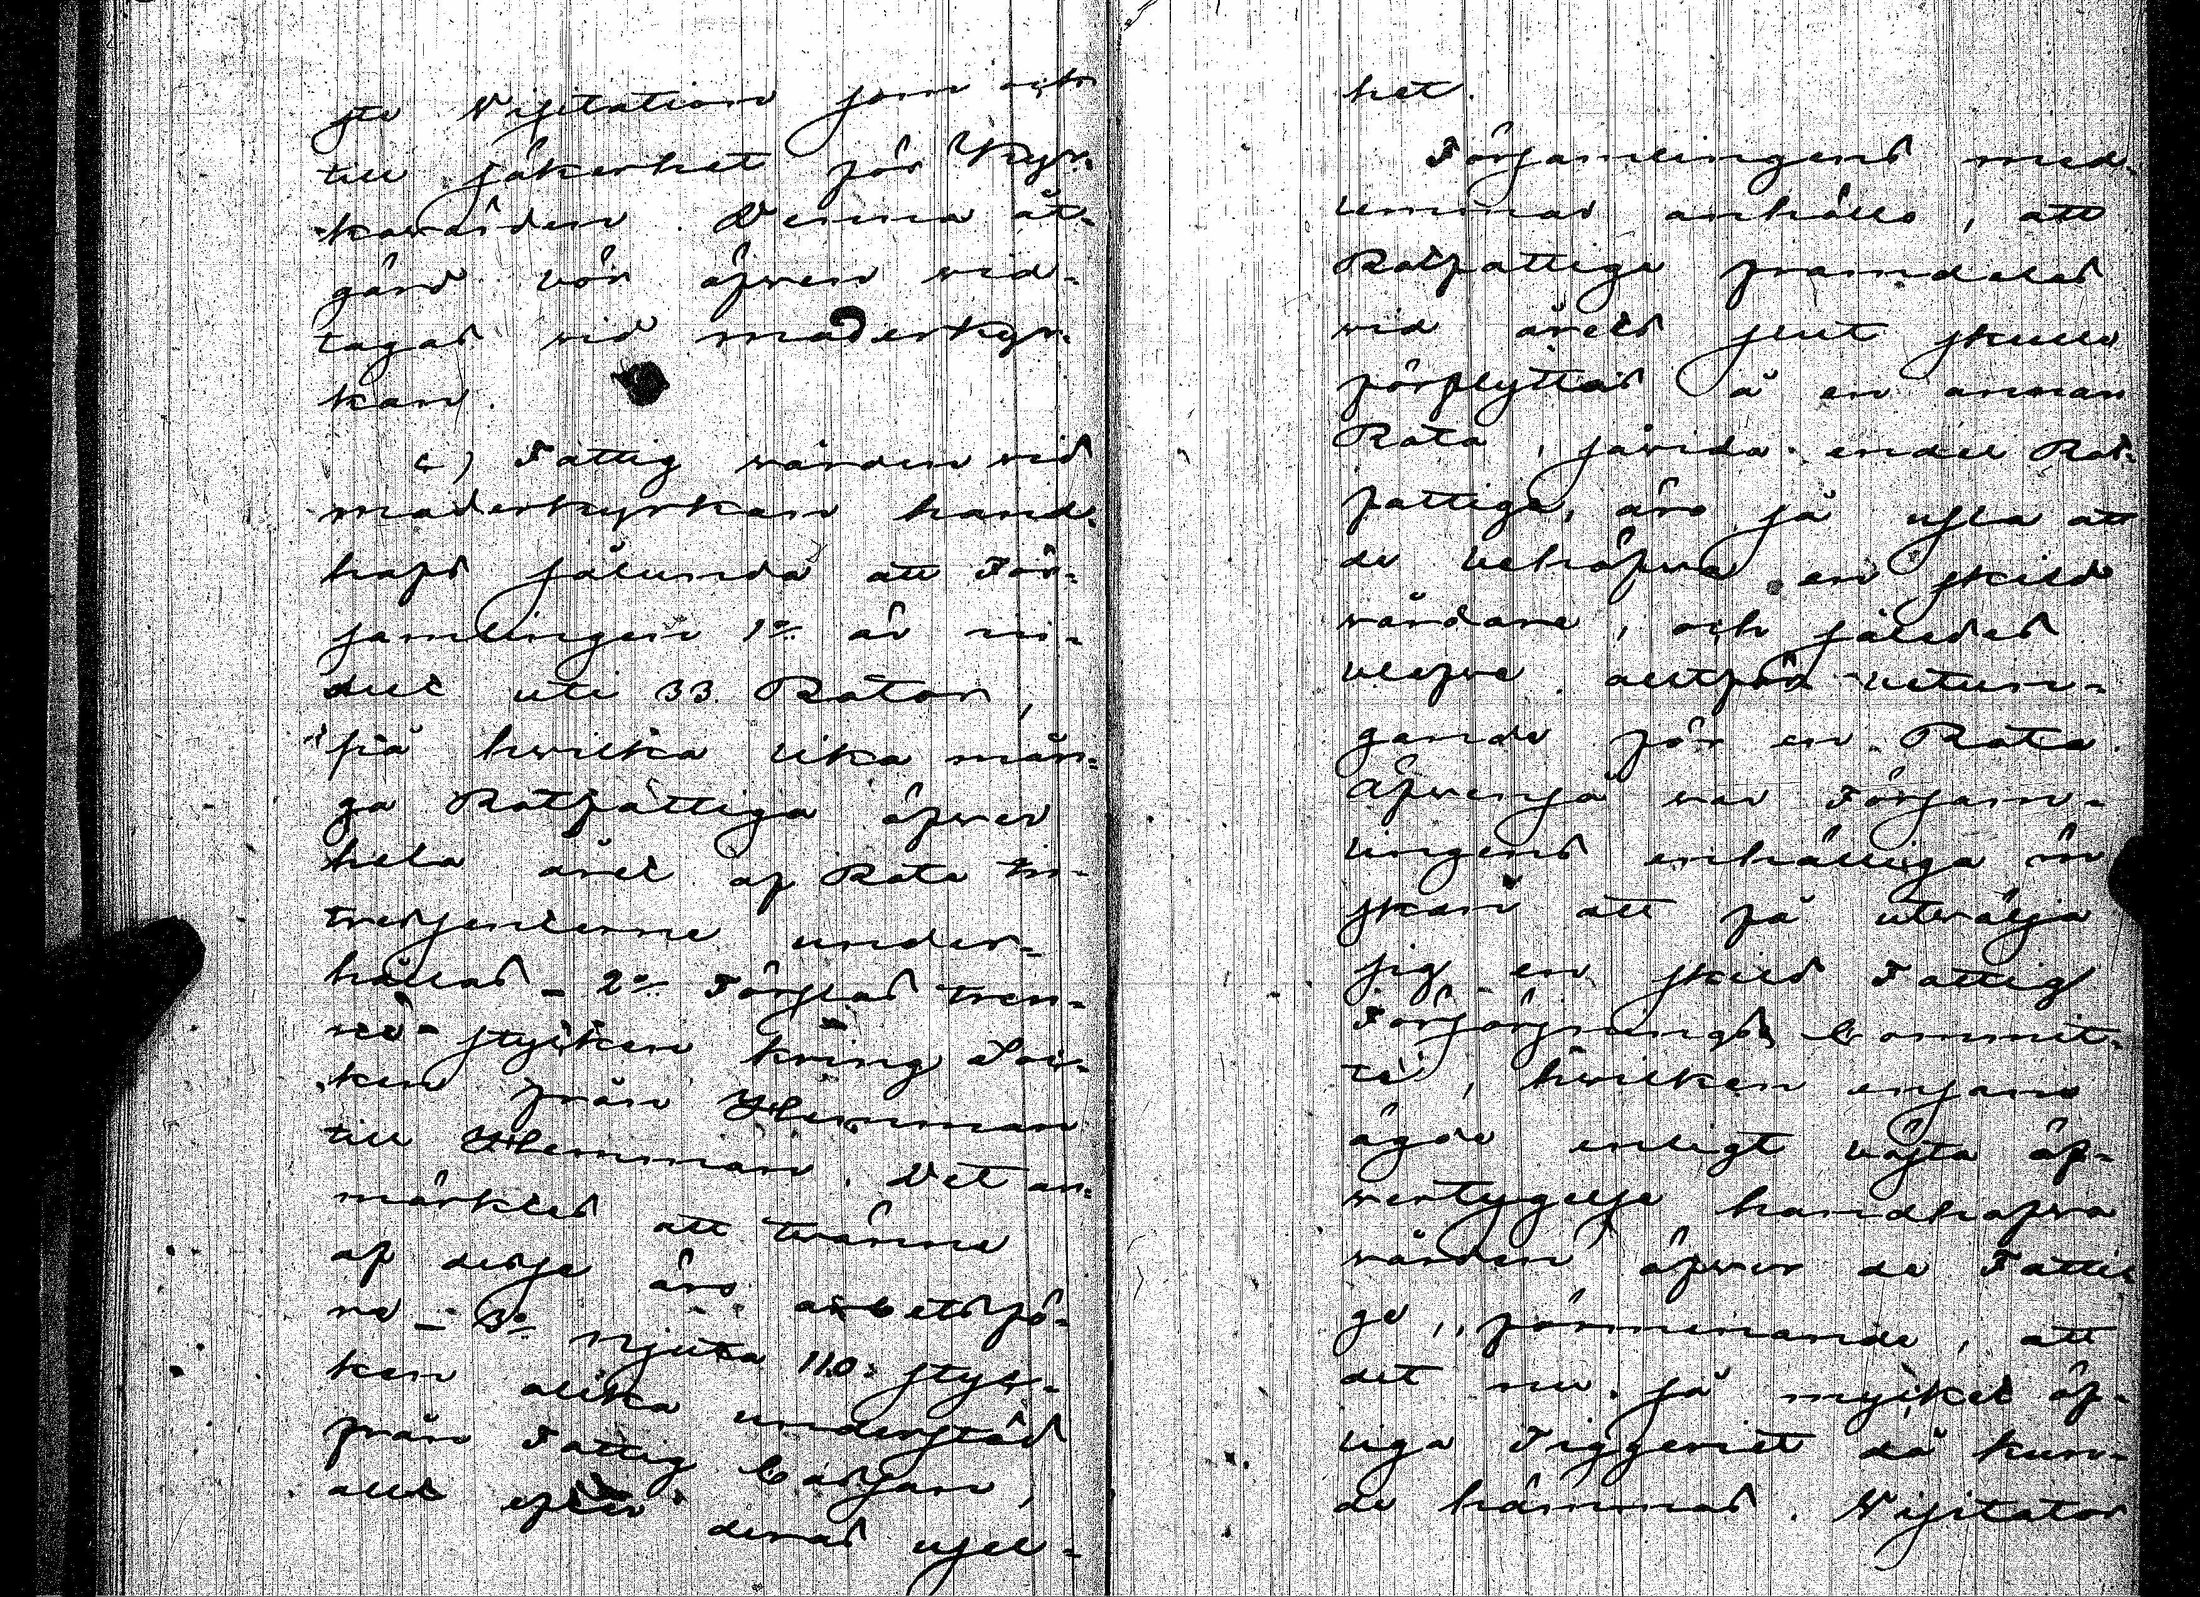 ste Visitation som och
till säkerhet för Kyr-
kowården. Denna åt-
gärd bör äfwen wid-
tagas wid moderkyr-
kan.
c) Fattig wården wid
moderkyrkan hand-
hafs sålunda att För-
samlingen 1o är in-
delt uti 33 Rotar,
på hwilka lika mån-
ga Rotfattiga öfwer
hela året af Rote In-
tressenterne under-
hållas - 2o Förslas tren-
ne stycken kring Soc-
ken från Hemman
till Hemman. Det an-
märktes att twänne
af desse äro arbetsfö-
re - 3o Njuta 110 styc-
ken olika understöd
från Fattig Cassan,
allt efter deras usel-
het.
Församlingens med-
lemmar anhöllo, att
Rotfattige framdeles
wid årets slut skulle
förflyttas å en annan
Rota, såwida endel Rot-
fattiga, äro så usla att
de behöfwa en skild
wårdare, och således
blefwe alltför betun-
gande för en Rota.
Äfwenså war Försam-
lingens enhälliga ön
skan att få utwälja
sig en skild Fattig
Försörjnings Commit-
té, hwilken ensam
ägde enligt bästa öf-
wertygelse handhafwa
wården öfwer de Fatti
ge, förmenande, att
det nu så mycket öf-
liga Tiggeriet då kun-
de hämmas. Visitator